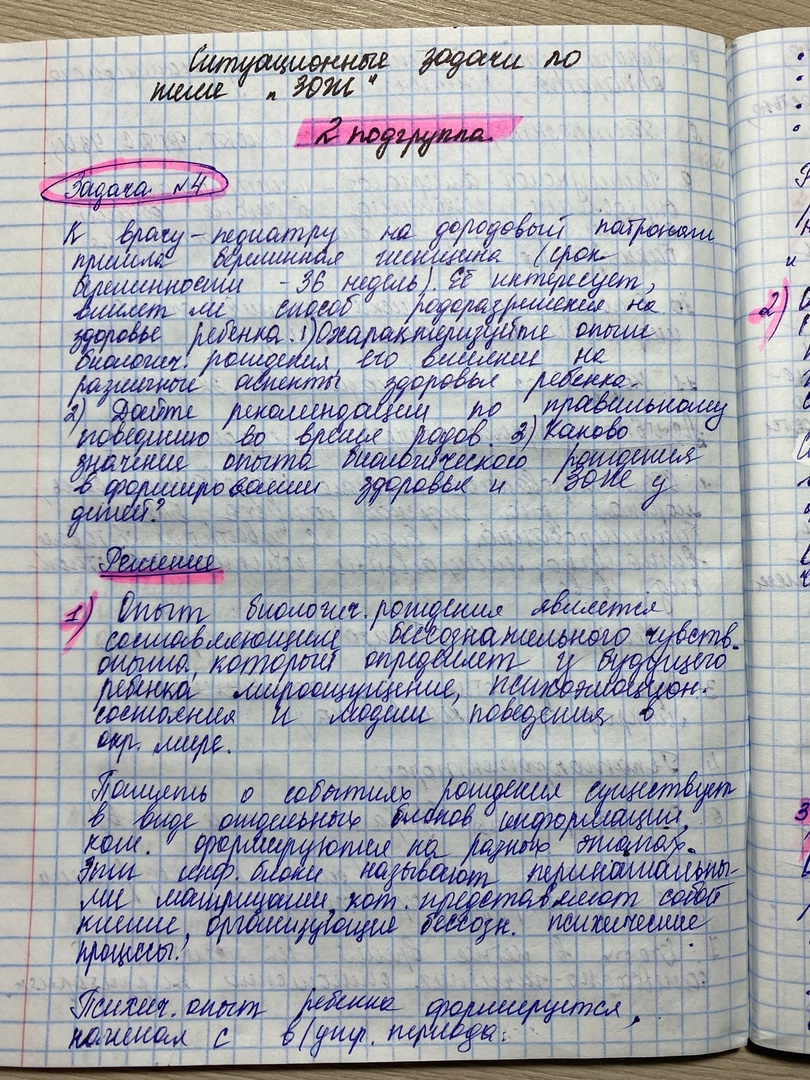 Ситуационные задачи по
теме „ЗОЖ"
2 подгруппа.
Задача №4
К врачу-педиатру на дородовый патронаж
пришла беременная женщина (срок
беременности - 36 недель). Её интересует,
влияет ли способ родоразрешения на
здоровье ребенка. 1) Охарактеризуйте опыт
биологич. рождения, его влияние на
различные аспекты здоровья ребенка.
2) Дайте рекомендации по правильному
поведению во время родов. 3) Каково
значение опыта биологического рождения
в формировании здоровья и ЗОЖ у
детей?
Решение
1) Опыт биологич. рождения является
составляющей бессознательного чувств.
опыта, который определяет у будущего
ребенка мироощущение, психоэмоцион.
состояния и модели поведения в
окр. мире.
Память о событиях рождения существует
в виде отдельных блоков информации,
кот. формируются на разных этапах.
Эти инф. блоки называют перинатальны-
ми матрицами, кот. представляют собой
клише, организующие бессозн. психические
процессы.
Психич. опыт ребенка формируется,
начиная с в/утр. периода.
2)
3